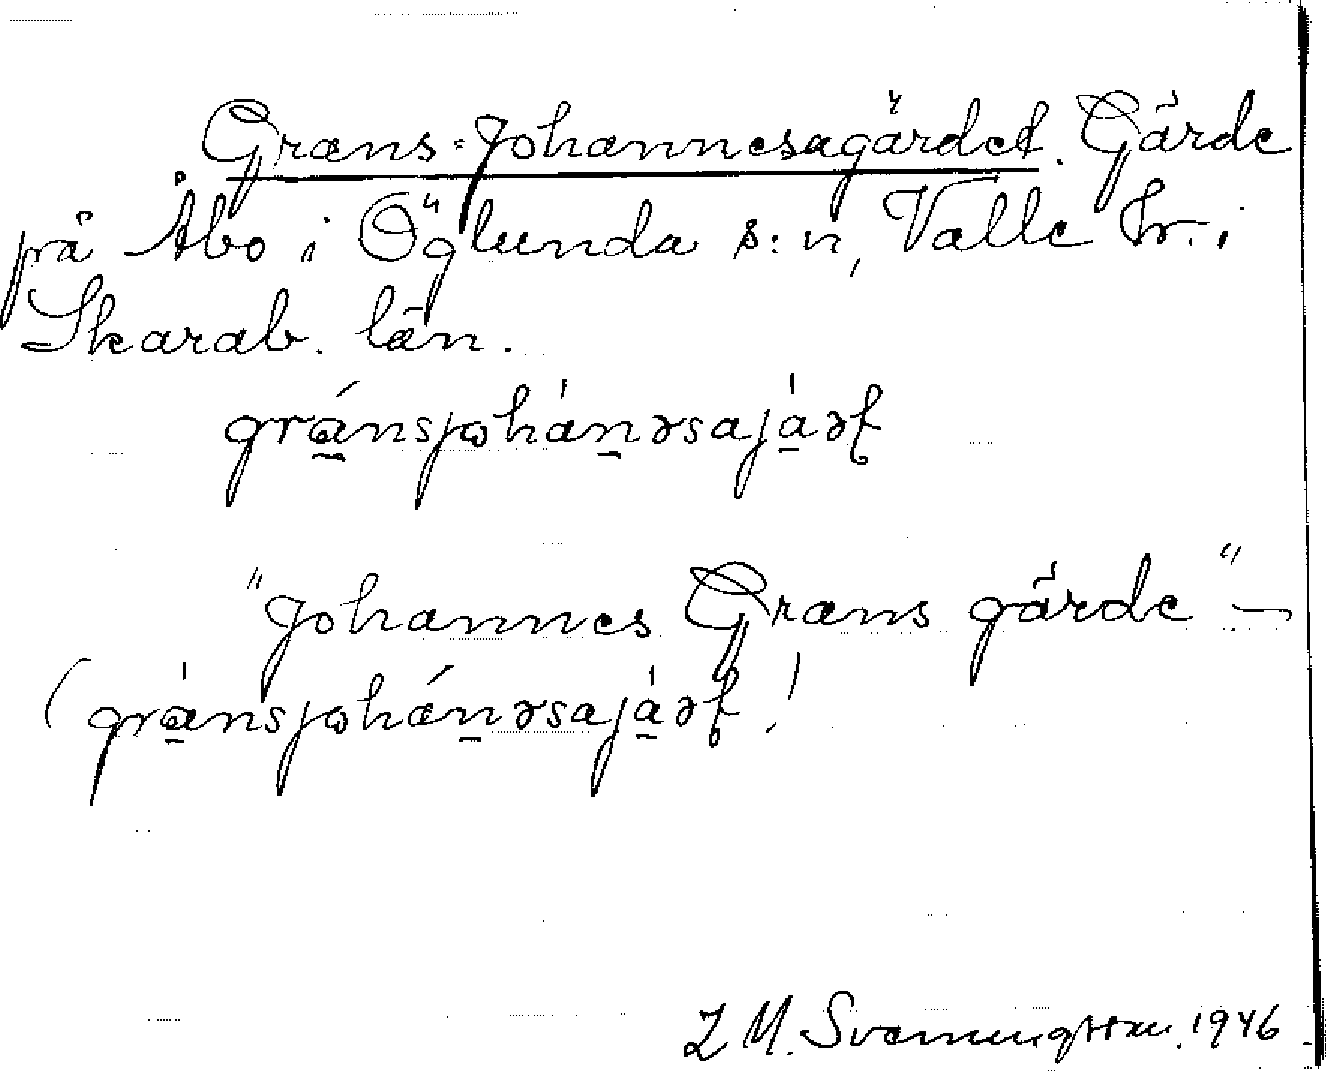 Grans-Johannesagärdet. Gärde
på Åbo i Öglunda s:n, Valle hr. i
Skarab. län.
gránsjohánəsajáəṭ
"Johannes Grans gärde" —
(gránsjohánəsajáəṭ!)
Z M. Svenungsson. 1946